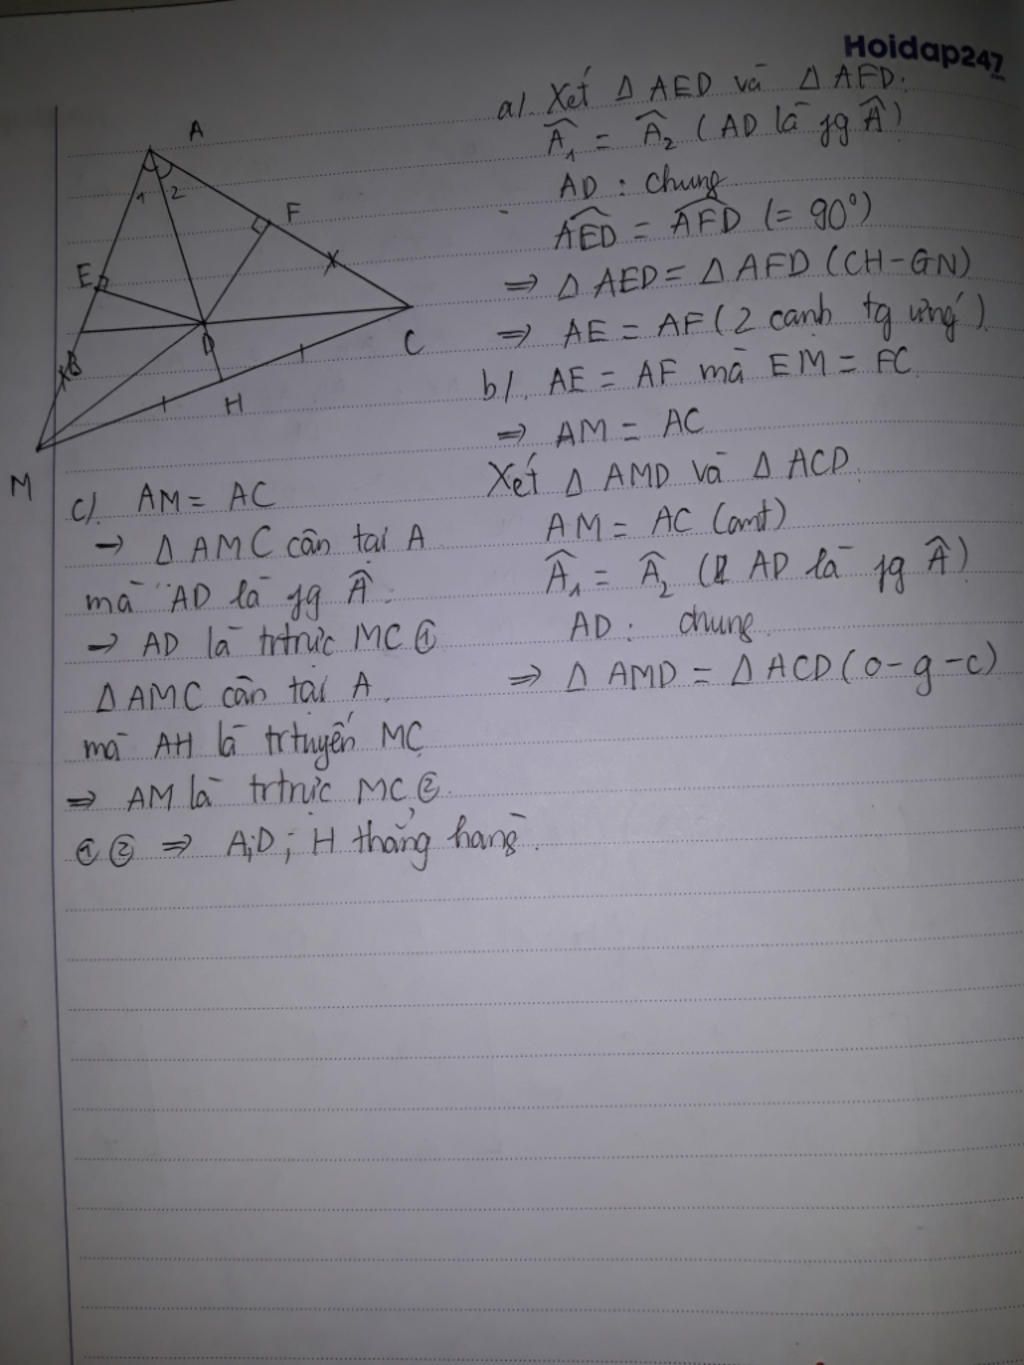 Hoidap247
a). Xét Δ AED và Δ AFD:
Â₁ = Â₂ (AD là fg Â)
AD : chung
AED = AFD (= 90°)
⇒ Δ AED = Δ AFD (CH-GN)
⇒ AE = AF (2 cạnh tg ứng)
b). AE = AF mà EM = FC
⇒ AM = AC
Xét Δ AMD và Δ ACD
AM = AC (cmt)
Â₁ = Â₂ (AD là fg Â)
AD : chung
⇒ Δ AMD = Δ ACD (c-g-c)
A
1 2
F
E
B
D
C
H
M
c). AM = AC
→ Δ AMC cân tại A
mà AD là fg Â
→ AD là trtrực MC ①
Δ AMC cân tại A
mà AH là trtuyến MC
⇒ AM là trtrực MC ②
① ② ⇒ A; D; H thẳng hàng.